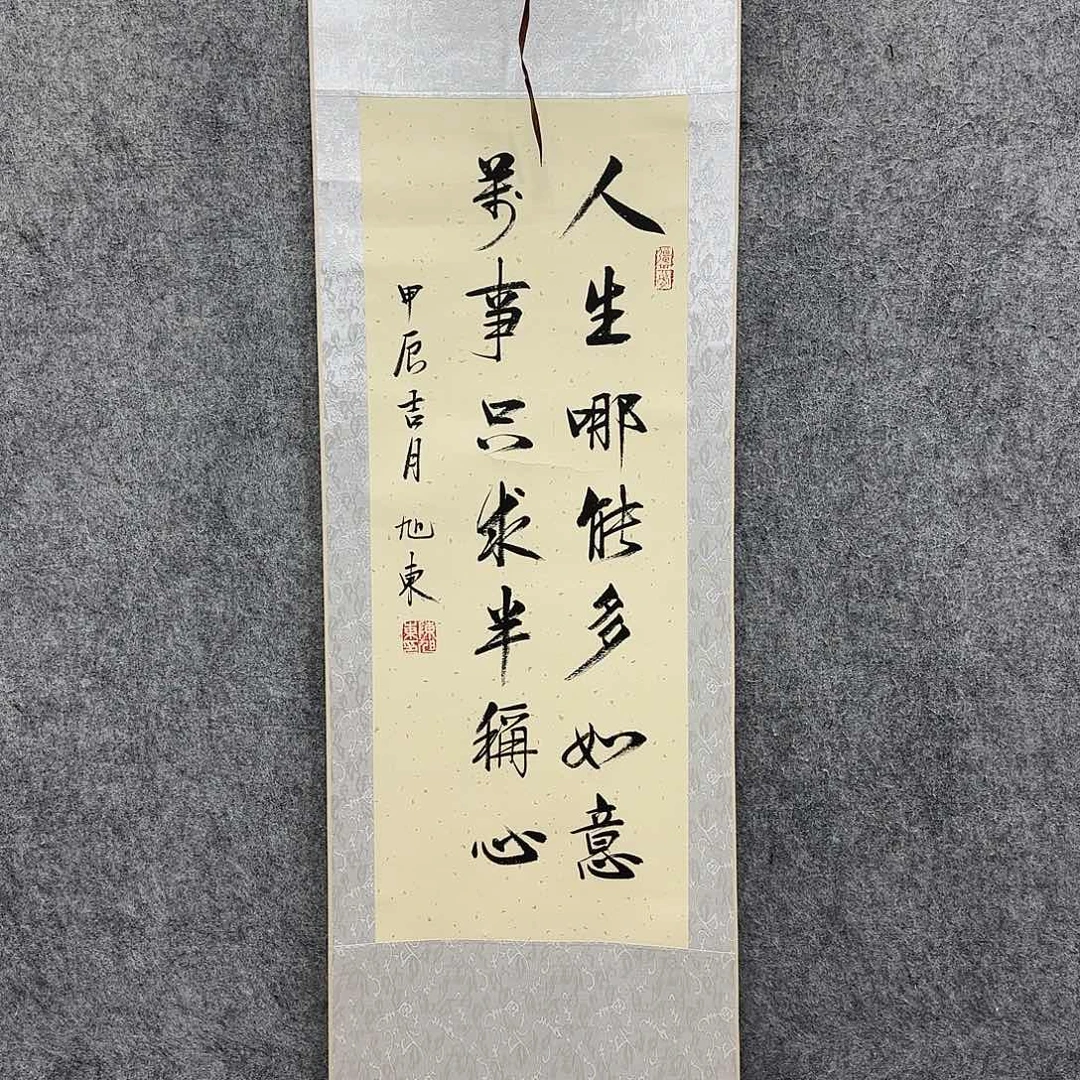 人生哪能多如意
萬事只求半稱心
甲辰吉月 旭東